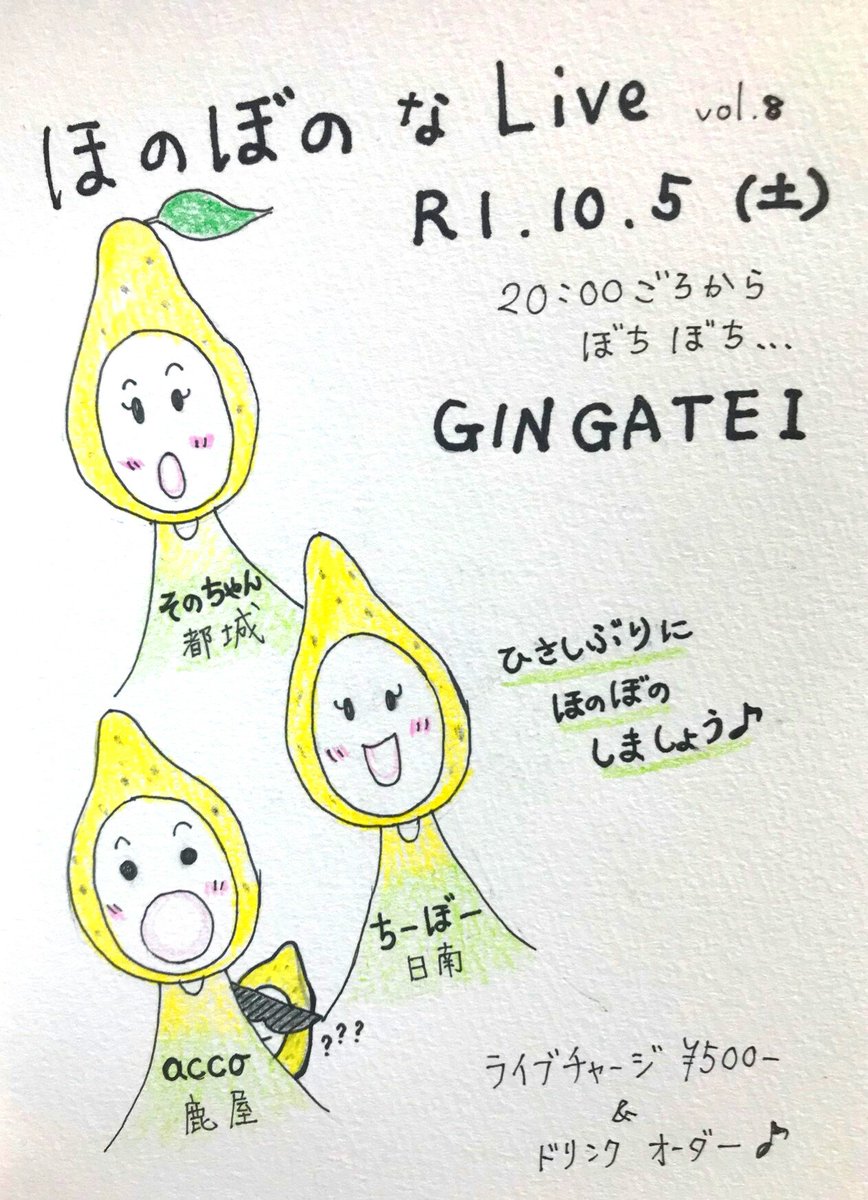 ほのぼのなLive vol.8
R1.10.5(土)
20:00ごろから
ぼちぼち...
GINGATEI
そのちゃん
都城
ひさしぶりに
ほのぼの
しましょう♪
ちーぼー
日南
acco
鹿屋
???
ライブチャージ ¥500-
&
ドリンク オーダー♪